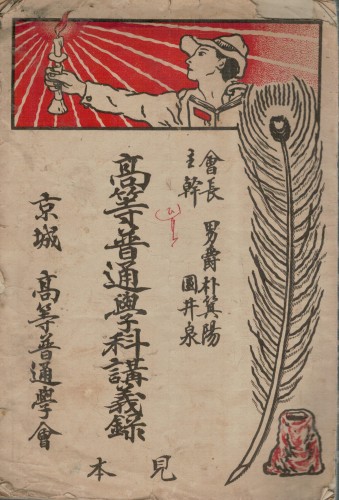 會長 男爵 朴箕陽
主幹 國井泉
高等普通學科講義錄
京城 高等普通學會
見本